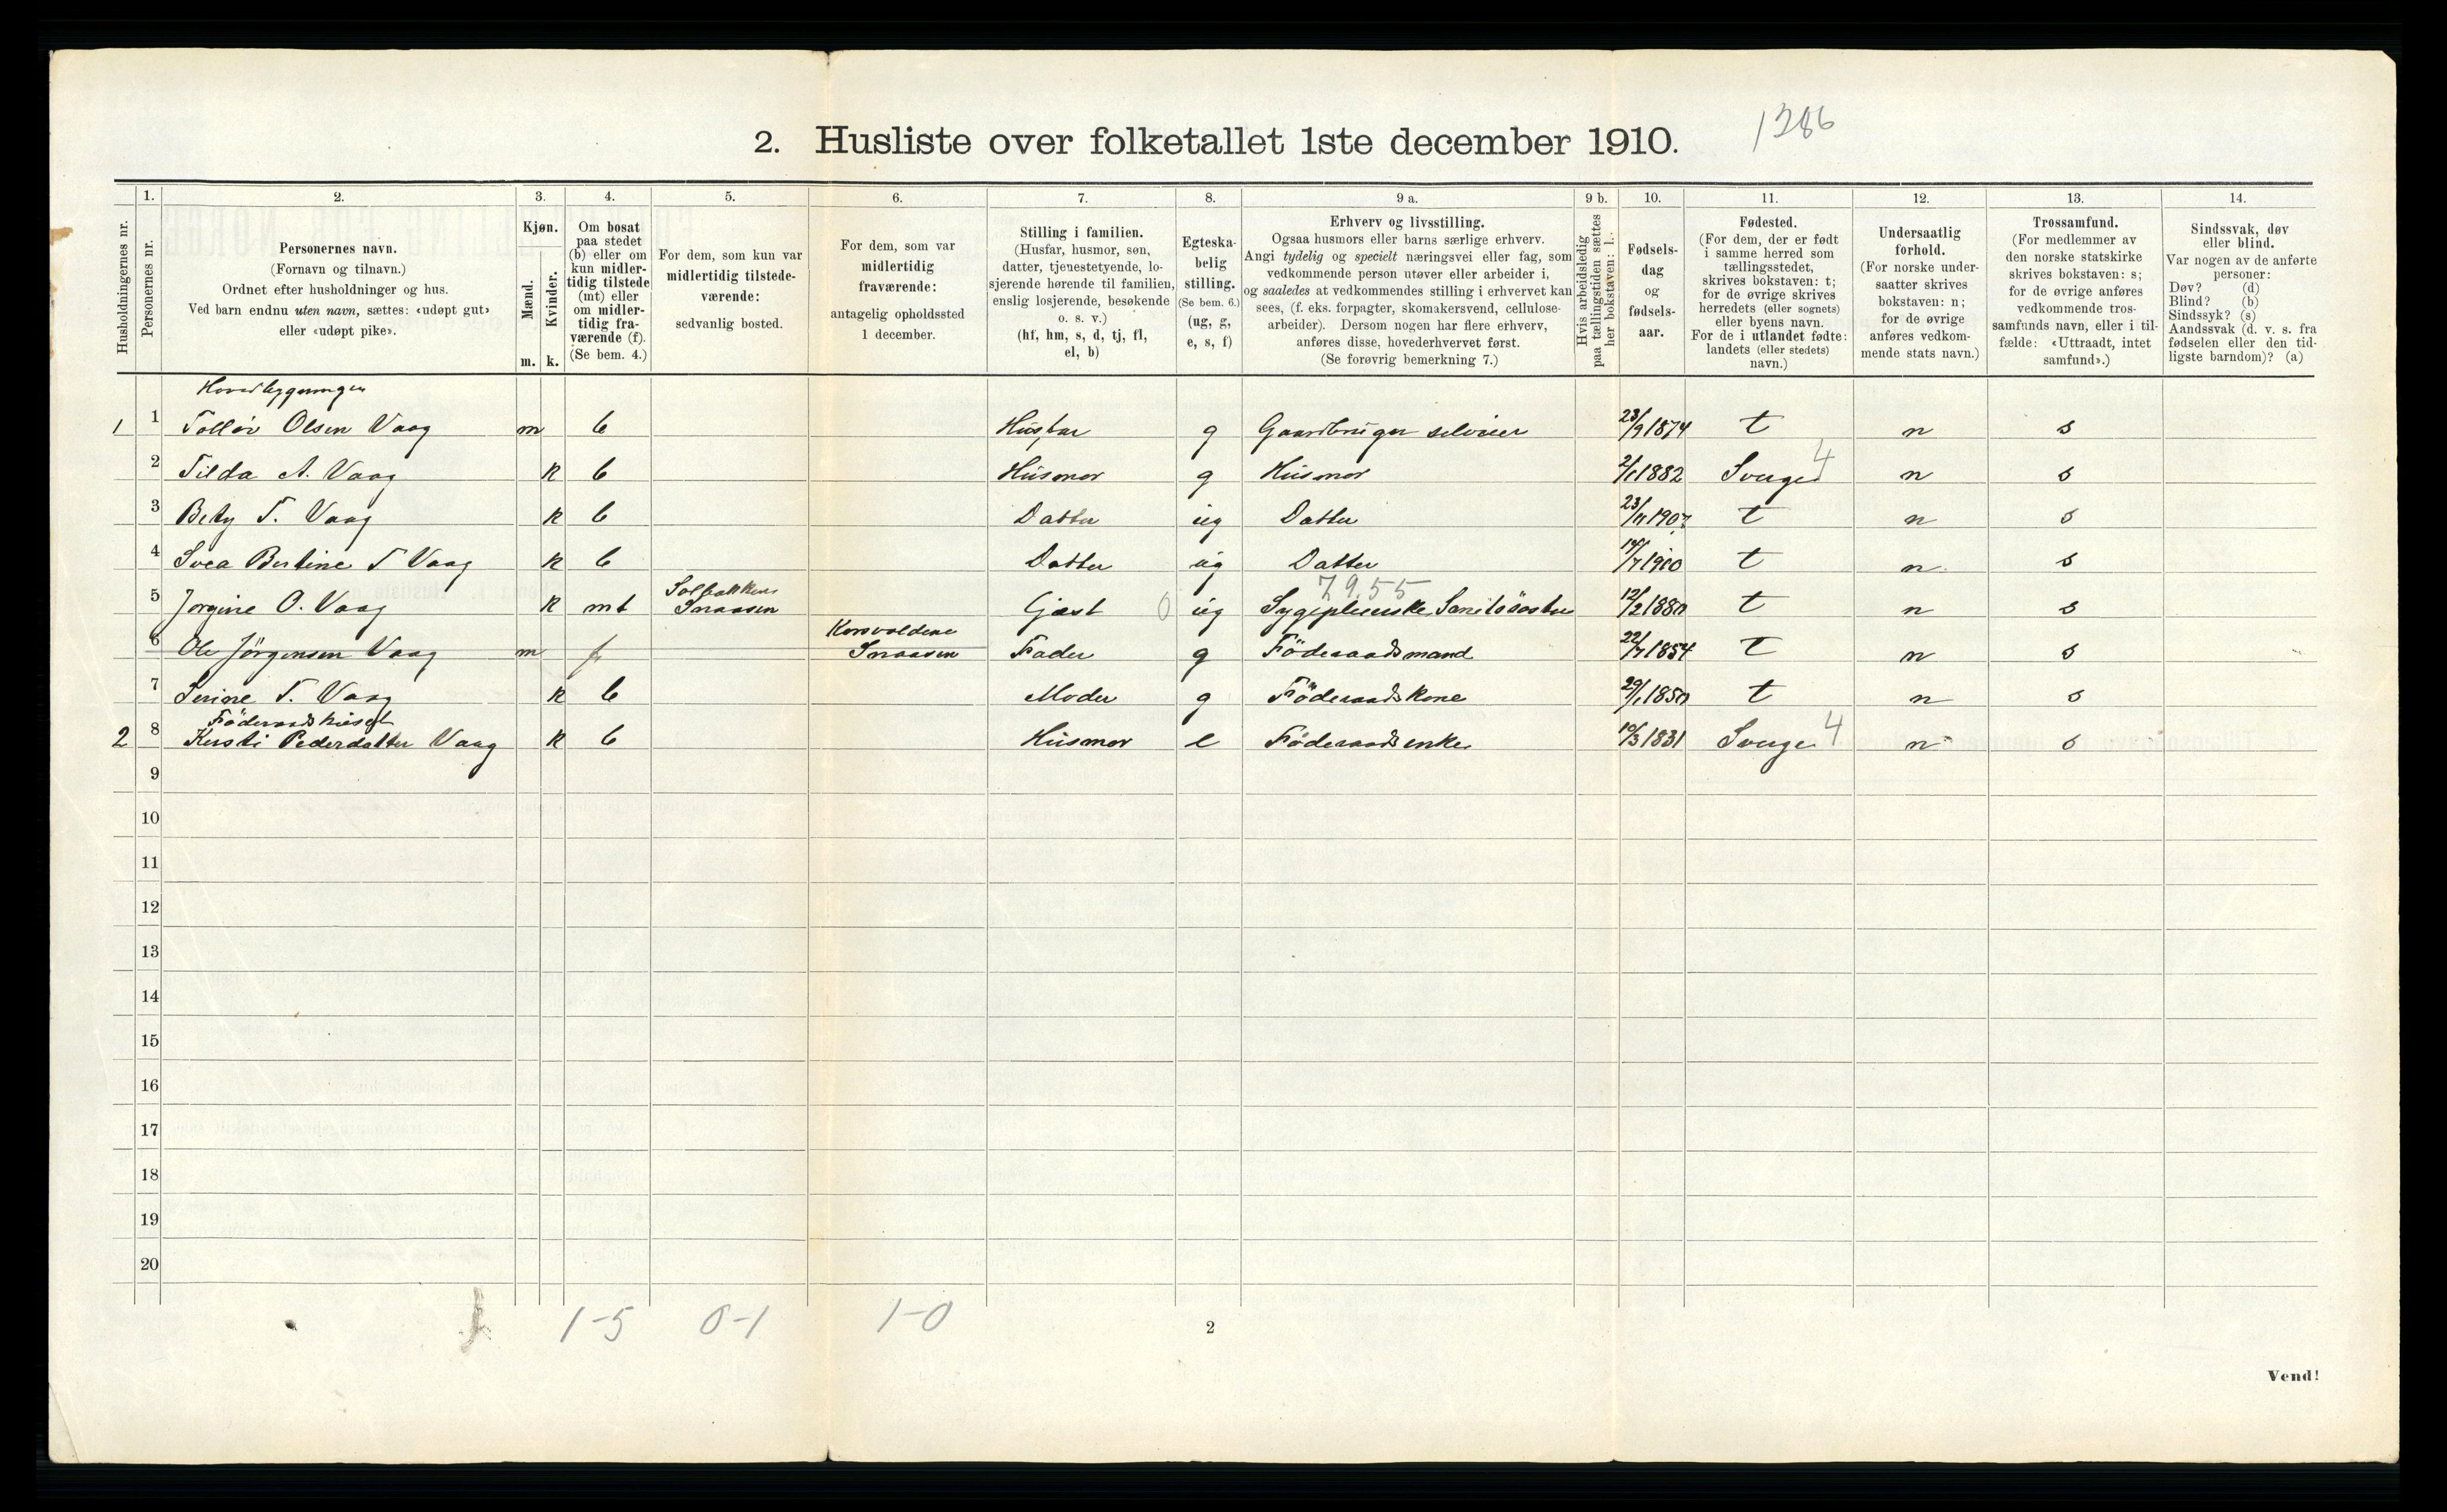 1286
2. Husliste over folketallet 1ste december 1910.
1. 2. 3. 4. 5. 6. 7. 8. 9 a. 9 b. 10. 11. 12. 13. 14.
Husholdningernes nr.
Personernes nr.
Personernes navn.
(Fornavn og tilnavn.)
Ordnet efter husholdninger og hus.
Ved barn endnu uten navn, sættes: «udøpt gut»
eller «udøpt pike».
Kjøn.
Mænd.
Kvinder.
m. k.
Om bosat
paa stedet
(b) eller om
kun midler-
tidig tilstede
(mt) eller
om midler-
tidig fra-
værende (f).
(Se bem. 4.)
For dem, som kun var
midlertidig tilstede-
værende:
sedvanlig bosted.
For dem, som var
midlertidig
fraværende:
antagelig opholdssted
1 december.
Stilling i familien.
(Husfar, husmor, søn,
datter, tjenestetyende, lo-
sjerende hørende til familien,
enslig losjerende, besøkende
o. s. v.)
(hf, hm, s, d, tj, fl,
el, b)
Egteska-
belig
stilling.
(Se bem. 6.)
(ug, g,
e, s, f)
Erhverv og livsstilling.
Ogsaa husmors eller barns særlige erhverv.
Angi tydelig og specielt næringsvei eller fag, som
vedkommende person utøver eller arbeider i,
og saaledes at vedkommendes stilling i erhvervet kan
sees, (f. eks. forpagter, skomakersvend, cellulose-
arbeider). Dersom nogen har flere erhverv,
anføres disse, hovederhvervet først.
(Se forøvrig bemerkning 7.)
Hvis arbeidsledig
paa tællingstiden sættes
her bokstaven: l.
Fødsels-
dag
og
fødsels-
aar.
Fødested.
(For dem, der er født
i samme herred som
tællingsstedet,
skrives bokstaven: t;
for de øvrige skrives
herredets (eller sognets)
eller byens navn.
For de i utlandet fødte:
landets (eller stedets)
navn.)
Undersaatlig
forhold.
(For norske under-
saatter skrives
bokstaven: n;
for de øvrige
anføres vedkom-
mende stats navn.)
Trossamfund.
(For medlemmer av
den norske statskirke
skrives bokstaven: s;
for de øvrige anføres
vedkommende tros-
samfunds navn, eller i til-
fælde: «Uttraadt, intet
samfund».)
Sindssvak, døv
eller blind.
Var nogen av de anførte
personer:
Døv? (d)
Blind? (b)
Sindssyk? (s)
Aandssvak (d. v. s. fra
fødselen eller den tid-
ligste barndom)? (a)
Hovedbygningen
1 1 Olsen Vaag m b Husfar g Gaardbruger selveier 23/9 1874 t n s
2 Tilda A. Vaag k b Husmor g Husmor 2/1 1882 Sverge 4 n s
3 Bety T. Vaag k b Datter ug Datter t n s
4 Svea Bertine T Vaag k b Datter ug Datter 1910 t n s
Solbakken 7955
5 Jorgine O. Vaag k mt Snaasen Gjæst 0 ug Sygepleierske, 12/2 1880 t n s
6 Ole Jörgensen Vaag m f Snaasen Fader g Föderaadsmand 1854 t n s
7 Serine T. Vaag k b Moder g Föderaadskone 1850 t n s
Föderaadshuset
2 8 Kersti Pedersdatter Vaag k b Husmor e Föderaadsenke 10/3 1831 Sverge 4 n s
9
10
11
12
13
14
15
16
17
18
19
20
1-5 0-1 1-0
2
Vend!